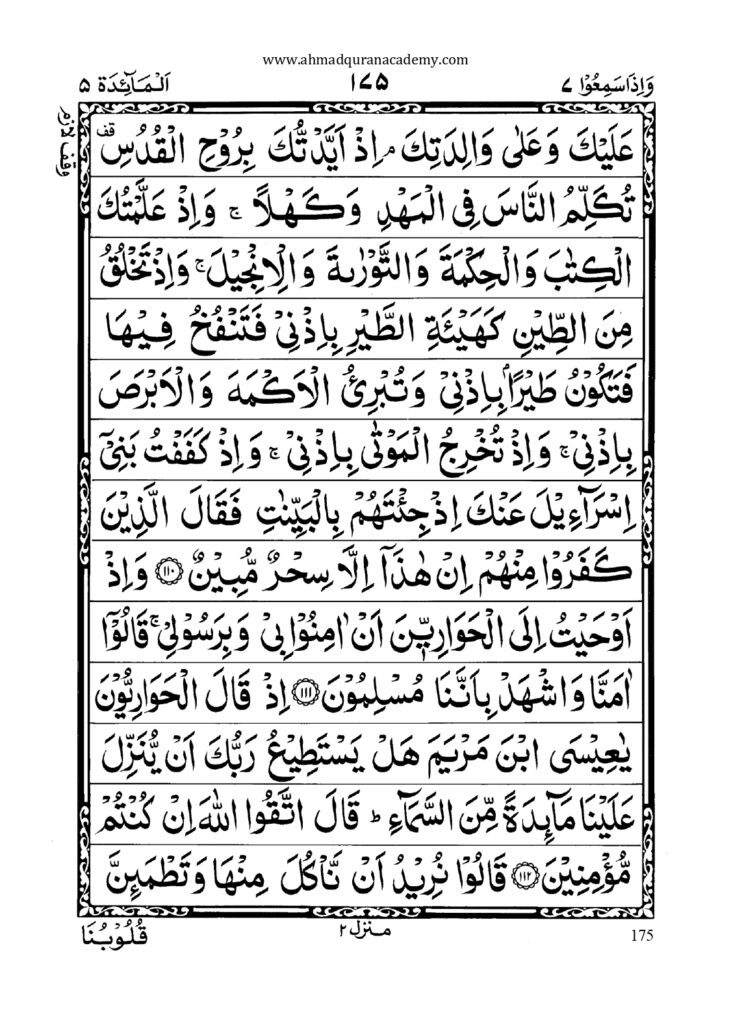 www.ahmadquranacademy.com
وَاِذَاسَمِعُوْا ٧ ١٧٥ اَلْمَآئِدَة ٥
وقف لازم
عَلَيْكَ وَعَلٰى وَالِدَتِكَ ۘ اِذْ اَيَّدْتُّكَ بِرُوْحِ الْقُدُسِ قف
تُكَلِّمُ النَّاسَ فِى الْمَهْدِ وَكَهْلًا ۚ وَاِذْ عَلَّمْتُكَ
الْكِتٰبَ وَالْحِكْمَةَ وَالتَّوْرٰىةَ وَالْاِنْجِيْلَ ۚ وَاِذْ تَخْلُقُ
مِنَ الطِّيْنِ كَهَيْئَةِ الطَّيْرِ بِاِذْنِىْ فَتَنْفُخُ فِيْهَا
فَتَكُوْنُ طَيْرًاۢ بِاِذْنِىْ وَتُبْرِئُ الْاَكْمَهَ وَالْاَبْرَصَ
بِاِذْنِىْ ۚ وَاِذْ تُخْرِجُ الْمَوْتٰى بِاِذْنِىْ ۚ وَاِذْ كَفَفْتُ بَنِىْٓ
اِسْرَآءِيْلَ عَنْكَ اِذْ جِئْتَهُمْ بِالْبَيِّنٰتِ فَقَالَ الَّذِيْنَ
كَفَرُوْا مِنْهُمْ اِنْ هٰذَآ اِلَّا سِحْرٌ مُّبِيْنٌ ١١٠ وَاِذْ
اَوْحَيْتُ اِلَى الْحَوَارِيّٖنَ اَنْ اٰمِنُوْا بِىْ وَبِرَسُوْلِىْ ۚ قَالُوْٓا
اٰمَنَّا وَاشْهَدْ بِاَنَّنَا مُسْلِمُوْنَ ١١١ اِذْ قَالَ الْحَوَارِيُّوْنَ
يٰعِيْسَى ابْنَ مَرْيَمَ هَلْ يَسْتَطِيْعُ رَبُّكَ اَنْ يُّنَزِّلَ
عَلَيْنَا مَآئِدَةً مِّنَ السَّمَآءِ ؕ قَالَ اتَّقُوا اللّٰهَ اِنْ كُنْتُمْ
مُّؤْمِنِيْنَ ١١٢ قَالُوْا نُرِيْدُ اَنْ نَّاْكُلَ مِنْهَا وَتَطْمَئِنَّ
قُلُوْبُنَا منزل ٢ 175